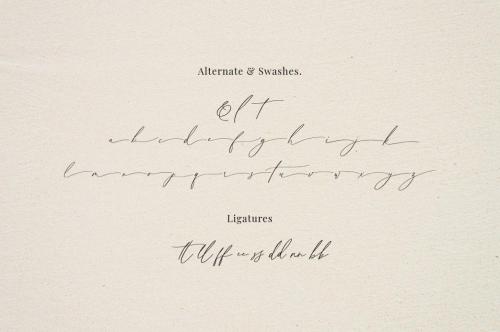 Alternate & Swashes.
Q l t
a b c d e f g h i j k
l m n o p q r s t u v w x y z
Ligatures
tt ll ff ee ss dd nn bb